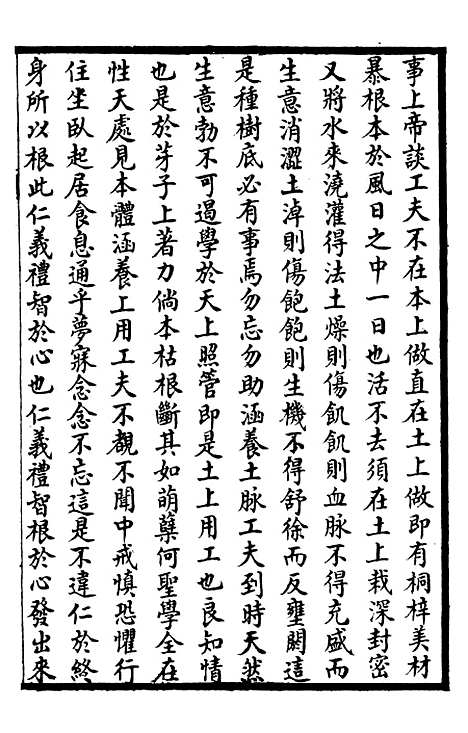 事上帝談工夫不在本上做直在土上做即有桐梓美材
暴根本於風日之中一日也活不去須在土上栽深封密
又將水來澆灌得法土燥則傷飢飢則血脉不得充盛而
生意消澀土淖則傷飽飽則生機不得舒徐而反壅閼這
是種樹底必有事焉勿忘勿助涵養土脉工夫到時天然
生意勃不可遏學於天上照管即是土上用工也良知情
也是於芽子上著力倘本枯根斷其如萌蘖何聖學全在
性天處見本體涵養上用工夫不覩不聞中戒慎恐懼行
住坐臥起居食息通乎夢寐念念不忘這是不違仁於終
身所以根此仁義禮智於心也仁義禮智根於心發出來